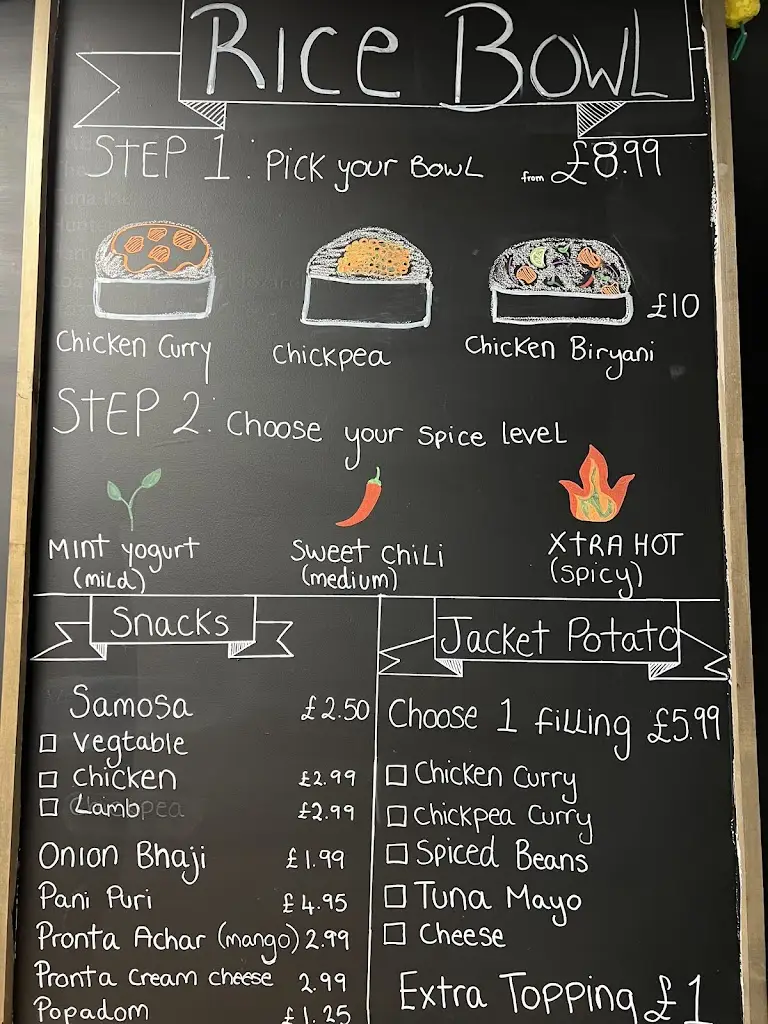 Rice Bowl
STEP 1: Pick your Bowl from £8.99
£10
Chicken Curry Chickpea Chicken Biryani
STEP 2: Choose your spice level
Mint yogurt Sweet Chili XtRA HOT
(mild) (medium) (spicy)
Snacks
Samosa £2.50
Vegtable
Chicken £2.99
Lamb £2.99
Onion Bhaji £1.99
Pani Puri £4.95
Pronta Achar (mango) 2.99
Pronta Cream cheese 2.99
Popadom £1.25
Jacket Potato
Choose 1 filling £5.99
Chicken Curry
Chickpea Curry
Spiced Beans
Tuna Mayo
Cheese
Extra Topping £1